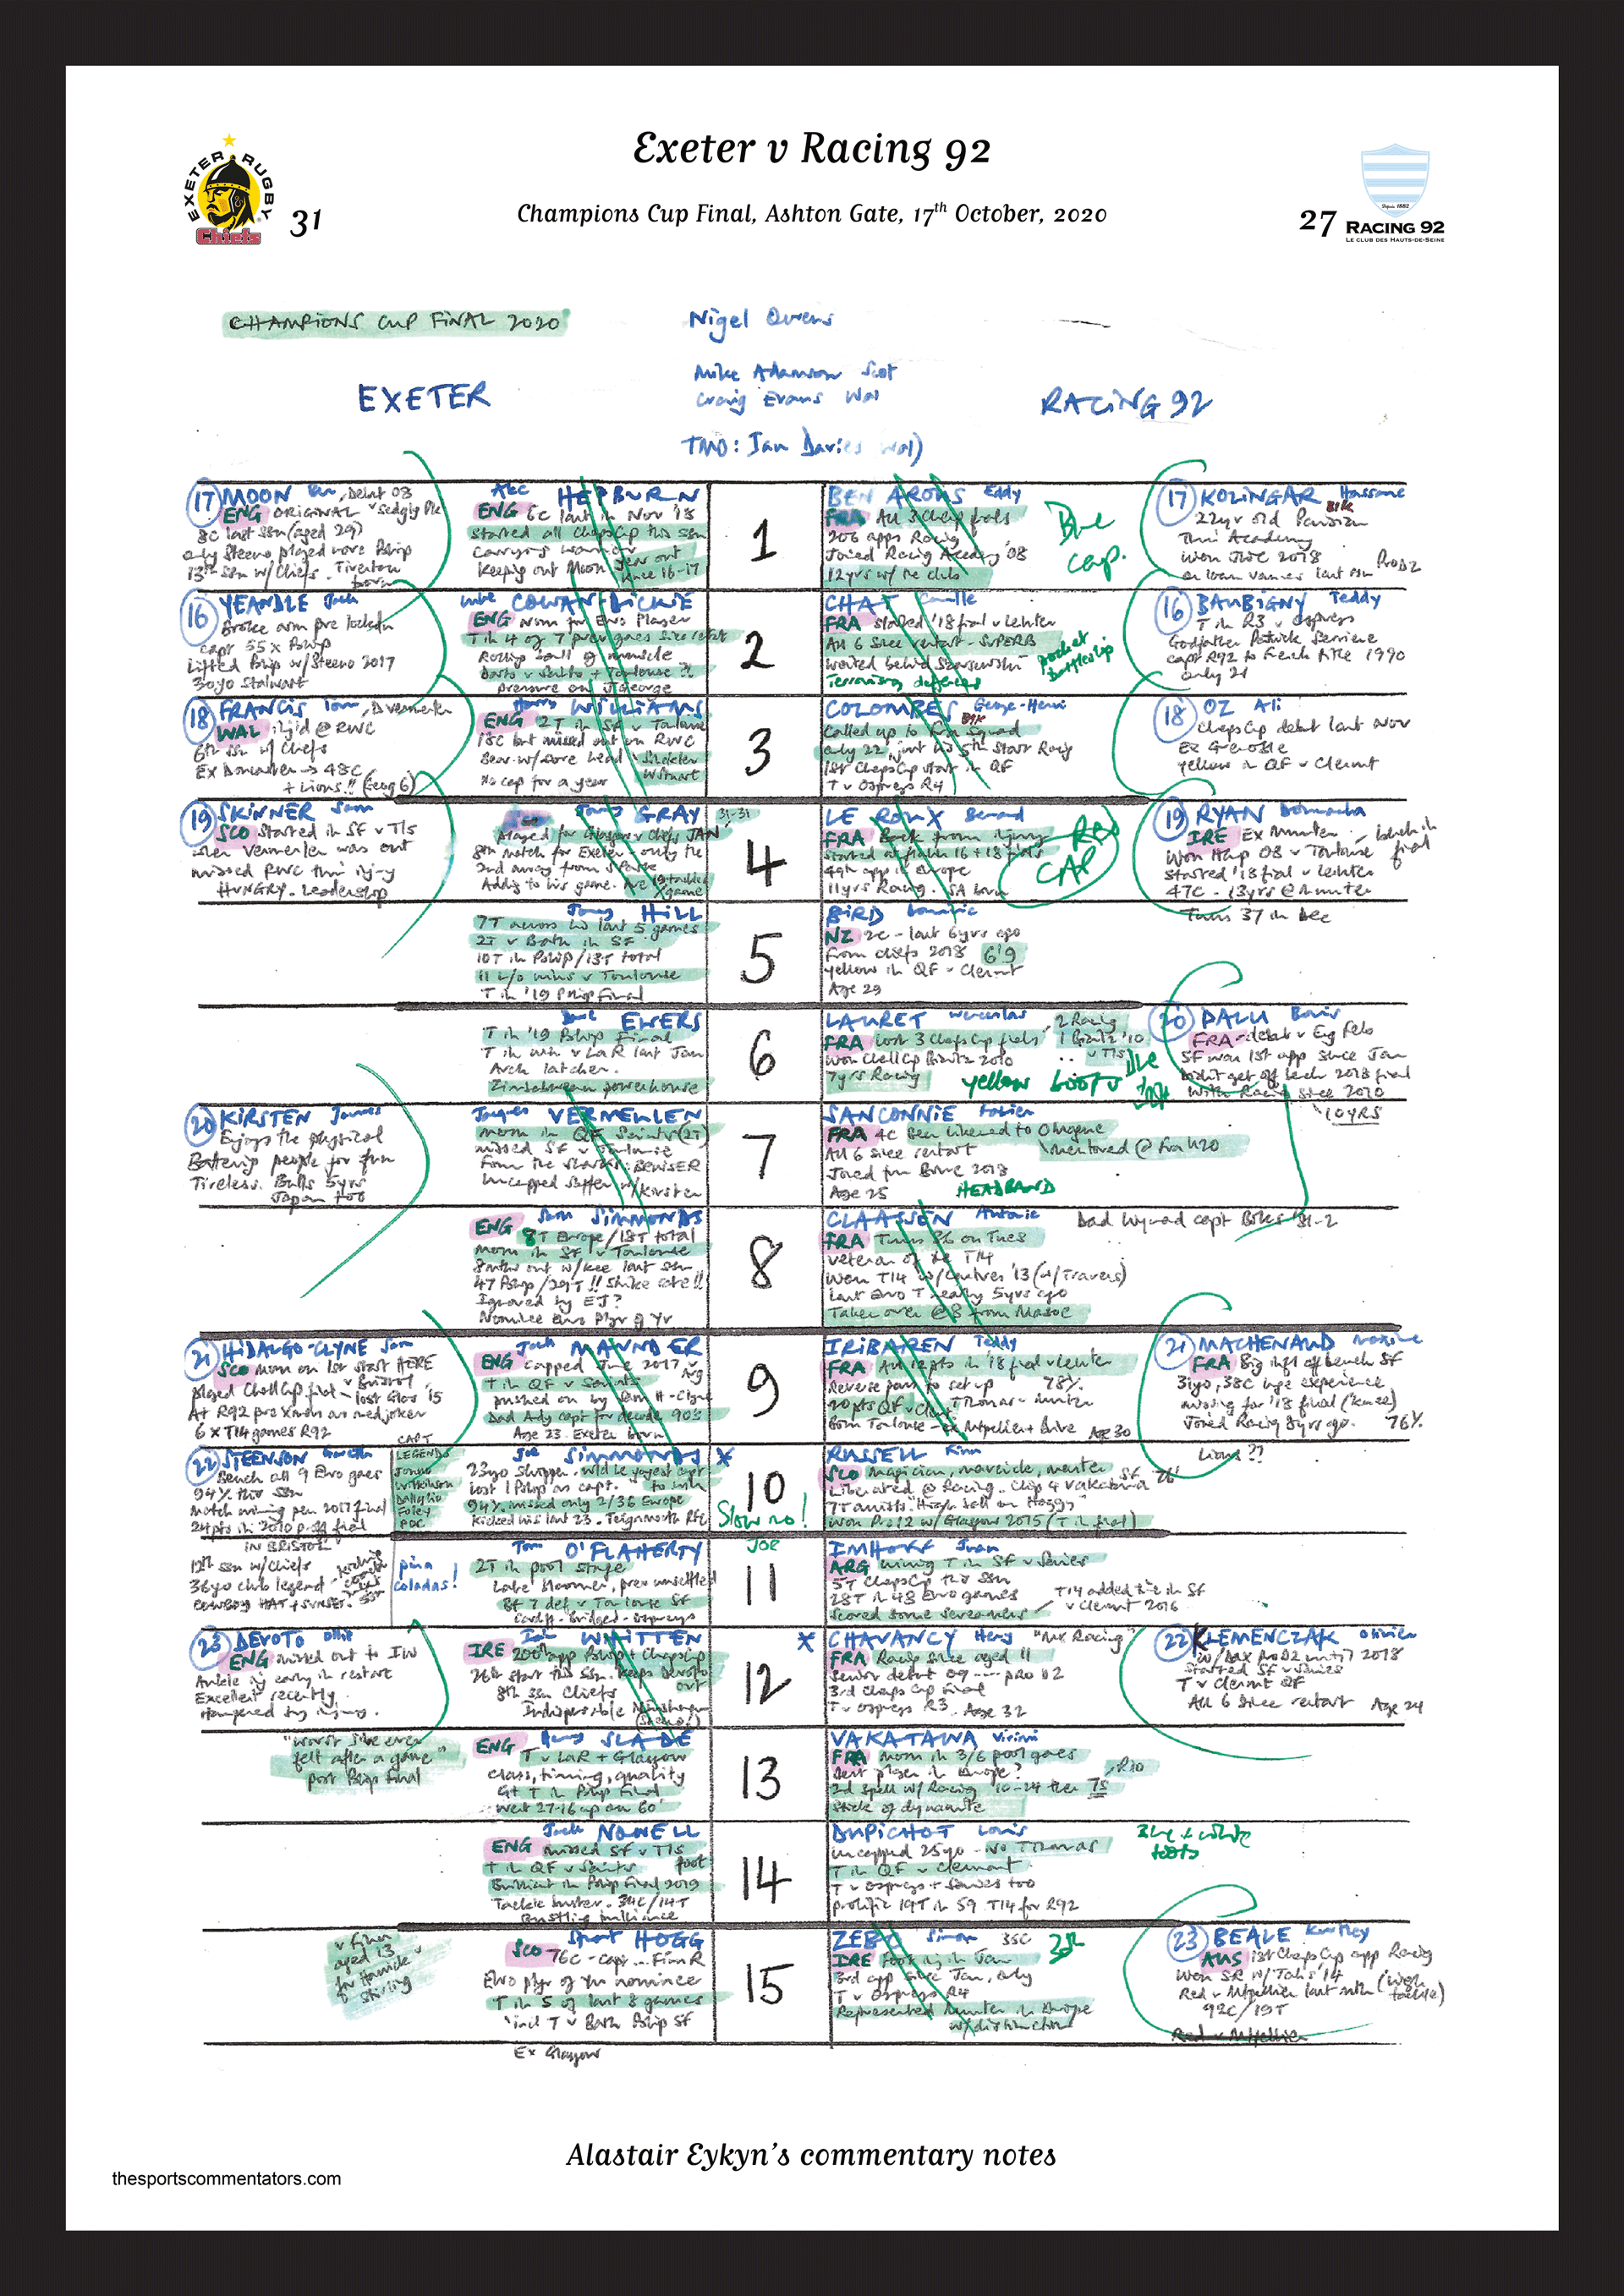 Exeter v Racing 92
EXETER RUGBY
Chiefs
31
Champions Cup Final, Ashton Gate, 17th October, 2020
27
Depuis 1882
RACING 92
LE CLUB DES HAUTS-DE-SEINE
CHAMPIONS CUP FINAL 2020
Nigel Owens
Mike Adamson Scot
Craig Evans Wal
EXETER
RACING 92
TMO: Ian Davies Wal)
17 MOON Debut 08
ENG ORIGINAL
8c last ssn (aged 29)
only Steeno played more Pship
13th ssn w/Chiefs. Tiverton
born
Alec HEPBURN
ENG 6c last in Nov '18
started all ChapsCup this ssn
Carrying warrior
Keeping out Moon
year out
since 16-17
1
BEN AROUS Eddy
FRA All 3 Chaps finals
206 apps Racing
Joined Racing Academy '08
12yrs w/the club
Blue
cap.
17 KOLINGAR Hassane
22yr old Parisian
Thru Academy
Won JWC 2018
on loan Vannes last ssn ProD2
16 YEANDLE Jack
Broke arm pre lockdn
capt 55 x Pship
Lifted Pship w/Steeno 2017
30yo Stalwart
Luke COWAN-DICKIE
ENG Nom for Euro Player
T in 4 of 7 prev games since restart
Rolling ball of muscle
Darts v Saints + Toulouse ?!
pressure on J George
2
CHAT Camille
FRA started '18 final v Leinster
All 6 since restart - SUPERB
waited behind Szarzewski
Terrorising defences
pocket
battleship
16 BAUBIGNY Teddy
T in R3 v Ospreys
Godfather Patrick Serriere
capt R92 to French title 1990
only 21
18 FRANCIS Tom
WAL inj'd @ RWC
6th ssn w/ Chiefs
Ex Doncaster → 48C
+ Lions!! (Eng 6)
Harry WILLIAMS
ENG 2T in SF v Toulouse
18C but missed out on RWC
Bear w/sore head
No cap for a year
Sinckler
W Stuart
3
COLOMBES George-Henri
Called up to Fra Squad
only 22, just his 5th start Racing
1st ChapsCup start in QF
T v Ospreys R4
18 OZ Ali
ChapsCup debut last Nov
Ex Grenoble
yellow in QF v Clermont
19 SKINNER Sam
SCO Started in SF v Tls
when Vermeulen was out
missed RWC thru inj-y
HUNGRY. Leadership
Jonny GRAY
31-31
Played for Glasgow v Chiefs JAN
8th match for Exeter - only the
2nd away from S Park
Adds to his game. Ave 19 tackles
x game
4
LE ROUX Bernard
FRA Back from injury
started at flank 16+18 finals
49th app in Europe
11yrs Racing. SA born
RED
CAP
19 RYAN Donnacha
IRE Ex Munster bench in
final
Won Hcup 08 v Toulouse
started '18 final v Leinster
47C - 13yrs @ Munster
Turns 37 in Dec
Jonny HILL
7T across his last 5 games
2T v Bath in SF
10T in Pship/13T total
11 L/o wins v Toulouse
T in '19 Pship Final
5
BIRD Dominic
NZ 2c - last 6yrs ago
From Chiefs 2018 6'9
yellow in QF v Clermont
Age 29
Dave EWERS
T in '19 Pship Final
T in win v LaR last Jan
Arch latcher.
Zimbabwean powerhouse
6
LAURET Wenceslas
FRA lost 3 ChapsCup finals
2 Racing
1 Biaritz '10
v Tls
Won ChallCup Biaritz 2010
7yrs Racing
yellow boots
blue
20 PALU Boris
FRA - debut v Eng Feb
SF was 1st app since Jan
Didn't get off bench 2018 final
With Racing since 2010
10YRS
20 KIRSTEN James
Enjoys the physical
Battering people for fun
Tireless. Bulls 5yrs
Japan too
Jacques VERMEULEN
mom in QF v Saints (2T)
missed SF v Toulouse
From the Sharks: BRUISER
Uncapped Saffer w/Kirsten
7
SANCONNIE Fabien
FRA 4c Been likened to Ollivon
All 6 since restart
mentored @ Fra U20
Joined from Brive 2018
Age 25
HEADBAND
Sam SIMMONDS
ENG 8T Europe/18T total
mom in SF v Toulouse
8mths out w/knee last ssn
47 Pship/29T!! Strike rate!!
Ignored by EJ?
Nominee Euro Plyr of Yr
8
CLAASSEN Antonie
FRA Turns 36 on Tues
Veteran of the T14
Won T14 w/Castres '13 (w/Travers)
last Euro T nearly 5yrs ago
Takes over @8 from Masoe
Dad Wynand capt Boks '81-2
21 HIDALGO-CLYNE Sam
SCO mom on 1st start HERE
v Bristol
played ChallCup final - lost Glos '15
At R92 pre Xmas as med joker
6 x T14 games R92
Jack MAUNDER
ENG capped June 2017 v Arg
T in QF v Saints
pushed on by Sam H-Clyne
Dad Andy capt for decade 90s
Age 23. Exeter born
9
IRIBAREN Teddy
FRA All 12pts in '18 final v Leinster
Reverse pass to set up
78%
Born Toulouse - ex Mtpellier + Brive Age 30
21 MACHENAUD Maxime
FRA Big infl off bench SF
31yo, 38C huge experience
missing for '18 final (knee)
Joined Racing 8yrs ago. 76%
Lions??
22 STEENSON Gareth
Bench all 9 Euro games
94% this ssn
match winning pen 2017 final
24pts in 2010 p-off final
IN BRISTOL
CAPT
LEGENDS
Jonno
Wilkinson
Dallaglio
Foley
POC
Joe SIMMONDS
23yo Skipper. wld be yngest capt
to win
lost 1 Pship as capt.
94%. missed only 2/36 Europe
Kicked his last 23. Teignmouth RFC
10
Slow no!
JOE
RUSSELL Finn
SCO magician, maverick, master
Liberated @ Racing. Chip 4 Vakatawa
7T assists "High ball on Hoggy"
Won Pro12 w/Glasgow 2015 (T in final)
12th ssn w/Chiefs
36yo club legend
COWBOY HAT + SUNSET.
pina
coladas!
Tom O'FLAHERTY
2T in pool stage
Late bloomer, prev unsettled
Bt 7 def v Toulouse SF
Cardiff. Bridgend. Ospreys
11
IMHOFF Juan
ARG winning T in SF v Saries
5T ChapsCup this ssn
28T in 48 Euro games
Scored some screamers
T14 added time in SF
v Clermont 2016
23 DEVOTO Ollie
ENG missed out to IW
Ankle inj early in restart
Excellent recently.
Hampered by injury.
Ian WHITTEN
IRE 200th app Pship + ChapsCup
26th start this ssn. Keeps Devoto
out
8th ssn Chiefs
Indispensible
12
CHAVANCY Henry "Mr Racing"
FRA Racing since aged 11
senior debut 09 --- PRO D2
3rd Chaps Cup final
T v Ospreys R3. Age 32
22 KLEMENCZAK Olivier
w/Dax ProD2 until 2018
Started SF v Saries
T v Clermont QF
All 6 since restart Age 24
"worst I've ever
felt after a game"
post Pship final
Henry SLADE
ENG T v LaR + Glasgow
Class, timing, quality
Gt T in Pship Final
Went 27-16 up on 60'
13
VAKATAWA Virimi
FRA mom in 3/6 pool games
Best player in Europe?
2nd spell w/ Racing 10-14 then 7s
Stick of dynamite
Jack NOWELL
ENG missed SF v Tls
foot
T in QF v Saints
Brilliant in Pship Final 2019
Tackle buster. 34C/14T
Bustling brilliance
14
DUPICHOT Louis
Uncapped 25yo - No Thomas
T in QF v Clermont
T v Ospreys + Saries too
prolific 19T in 59 T14 for R92
Blue + white
boots
v Finn
aged 13
for Hawick
v Stirling
Stuart HOGG
SCO 76C - capt... Finn R
Euro plyr of Yr nominee
T in 5 of last 8 games
incl T v Bath Pship SF
Ex Glasgow
15
ZEBO Simon 35C
IRE Foot inj in Jan
3rd app since Jan, only
T v Ospreys R4
Represented Munster in Europe
w/distinction
23 BEALE Kurtley
AUS 1st ChapsCup app Racing
Won SR w/Tahs '14
Red v Mtpellier last mth (high
tackle)
92C/19T
Red v Mtpellier
Alastair Eykyn's commentary notes
thesportscommentators.com